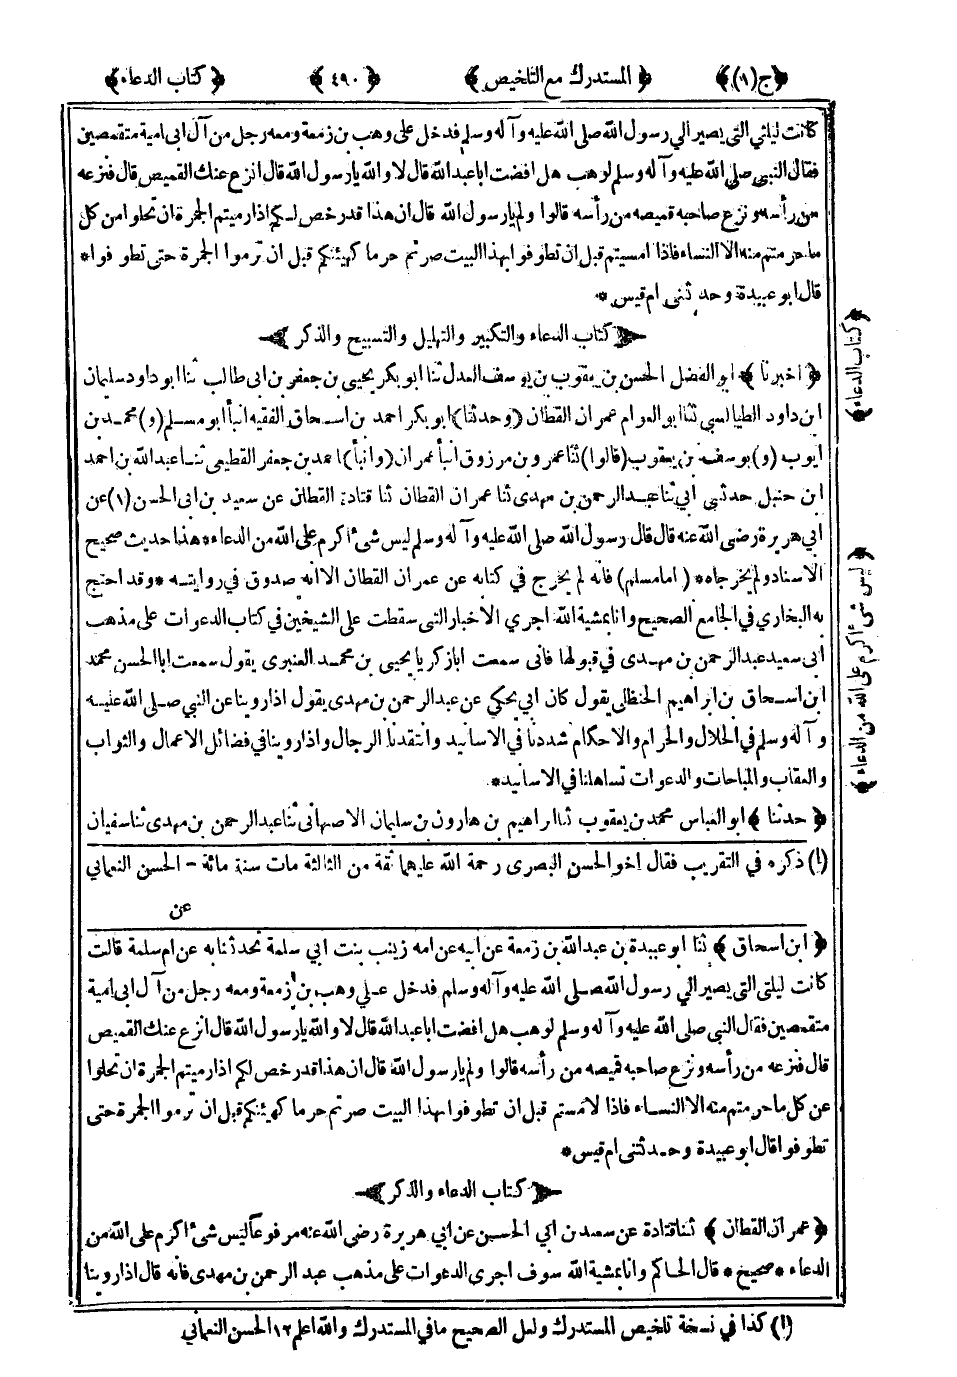 ﴿ج(١)﴾ ﴿المستدرك مع التلخيص﴾ ﴿٤٩٠﴾ ﴿كتاب الدعاء﴾
كانت ليلتي التى يصير الي رسول الله صلى الله عليه و آله وسلم فدخل على وهب بن زمعة ومعه رجل من آل ابى امية متقمصين
فقال النبي صلى الله عليه و آله وسلم لوهب هل افضت ابا عبد الله قال لا و الله يا رسول الله قال انزع عنك القميص قال فنزعه
من رأسه ونزع صاحبه قميصه من رأسه قالوا ولم يا رسول الله قال ان هذا قد رخص لكم اذا رميتم الجمرة ان تحلوا من كل
ما حرمتم منه الا النساء فاذا امسيتم قبل ان تطوفوا بهذا البيت صرتم حرما كهيئتكم قبل ان ترموا الجمرة حتى تطوفوا*
قال ابو عبيدة وحدثنى ام قيس*
كتاب الدعاء والتكبير والتهليل والتسبيح والذكر
﴿اخبرنا﴾ ابو الفضل الحسن بن يعقوب بن يوسف العدل ثنا ابو بكر يحيى بن جعفر بن ابى طالب ثنا ابو داود سليمان
ابن داود الطيالسي ثنا ابو العوام عمران القطان (وحدثنا) ابو بكر احمد بن اسحاق الفقيه انبأ ابو مسلم (و) محمد بن
ايوب (و) يوسف بن يعقوب (قالوا) ثنا عمرو بن مرزوق انبأ عمران (وانبأ) احمد بن جعفر القطيعى ثنا عبد الله بن احمد
ابن حنبل حدثنى ابي ثنا عبد الرحمن بن مهدى ثنا عمران القطان ثنا قتادة القطان عن سعيد بن ابى الحسن (١) عن
ابي هريرة رضى الله عنه قال قال رسول الله صلى الله عليه و آله وسلم ليس شئ اكرم على الله من الدعاء* هذا حديث صحيح
الاسناد ولم يخرجاه* (اما مسلم) فانه لم يخرج في كتابه عن عمران القطان الا انه صدوق في روايته* وقد احتج
به البخاري في الجامع الصحيح وانا بمشية الله اجري الاخبار التى سقطت على الشيخين في كتاب الدعوات على مذهب
ابى سعيد عبد الرحمن بن مهدى في قبولها فانى سمعت ابا زكريا يحيى بن محمد العنبرى يقول سمعت ابا الحسن محمد
ابن اسحاق بن ابراهيم الحنظلى يقول كان ابي يحكي عن عبد الرحمن بن مهدى يقول اذا روينا عن النبي صلى الله عليه
و آله وسلم في الحلال والحرام والاحكام شددنا في الاسانيد وانتقدنا الرجال واذا روينا في فضائل الاعمال والثواب
والعقاب والمباحات والدعوات تساهلنا في الاسانيد*
﴿حدثنا﴾ ابو العباس محمد بن يعقوب ثنا ابراهيم بن هارون بن سليمان الاصبهانى ثنا عبد الرحمن بن مهدى ثنا سفيان
(١) ذكره في التقريب فقال اخو الحسن البصرى رحمة الله عليهما ثقة من الثالثة مات سنة مائة - الحسن النعماني
عن
﴿ابن اسحاق﴾ ثنا ابو عبيدة بن عبد الله بن زمعة عن ابيه عن امه زينب بنت ابي سلمة تحدثنا به عن ام سلمة قالت
كانت ليلتى التى يصير الي رسول الله صلى الله عليه و آله وسلم فدخل علي وهب بن زمعة ومعه رجل من آل ابى امية
متقمصين فقال النبي صلى الله عليه و آله وسلم لوهب هل افضت ابا عبد الله قال لا والله يا رسول الله قال انزع عنك القميص
قال فنزعه من رأسه ونزع صاحبه قميصه من رأسه قالوا ولم يا رسول الله قال ان هذا قد رخص لكم اذا رميتم الجمرة ان تحلوا
عن كل ما حرمتم منه الا النساء فاذا لامستم قبل ان تطوفوا بهذا البيت صرتم حرما كهيئتكم قبل ان ترموا الجمرة حتى
تطوفوا قال ابو عبيدة وحدثنى ام قيس*
كتاب الدعاء والذكر
﴿عمران القطان﴾ ثنا قتادة عن سعيد بن ابي الحسين عن ابي هريرة رضى الله عنه مرفوعا ليس شئ اكرم على الله من
الدعاء* صحيح* قال الحاكم وانا بمشية الله سوف اجرى الدعوات على مذهب عبد الرحمن بن مهدى فانه قال اذا روينا
(١) كذا في نسخة تلخيص المستدرك ولعل الصحيح ما في المستدرك والله اعلم ١٢ الحسن النعماني
﴿كتاب الدعاء﴾
﴿ليس شئ اكرم على الله من الدعاء﴾